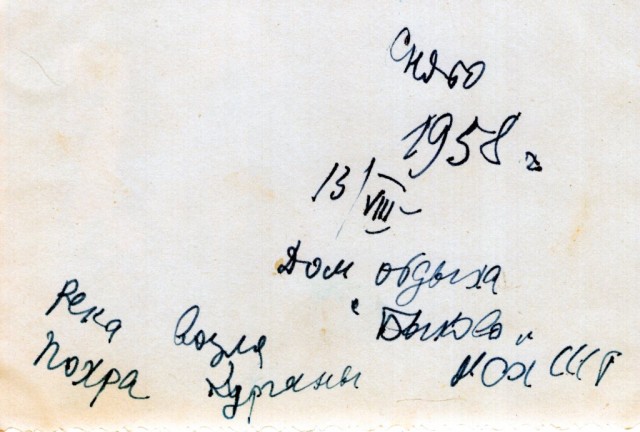 Снято
1958 г.
13/VIII
Дом отдыха
"Быково"
Река возле
Похра Курганы